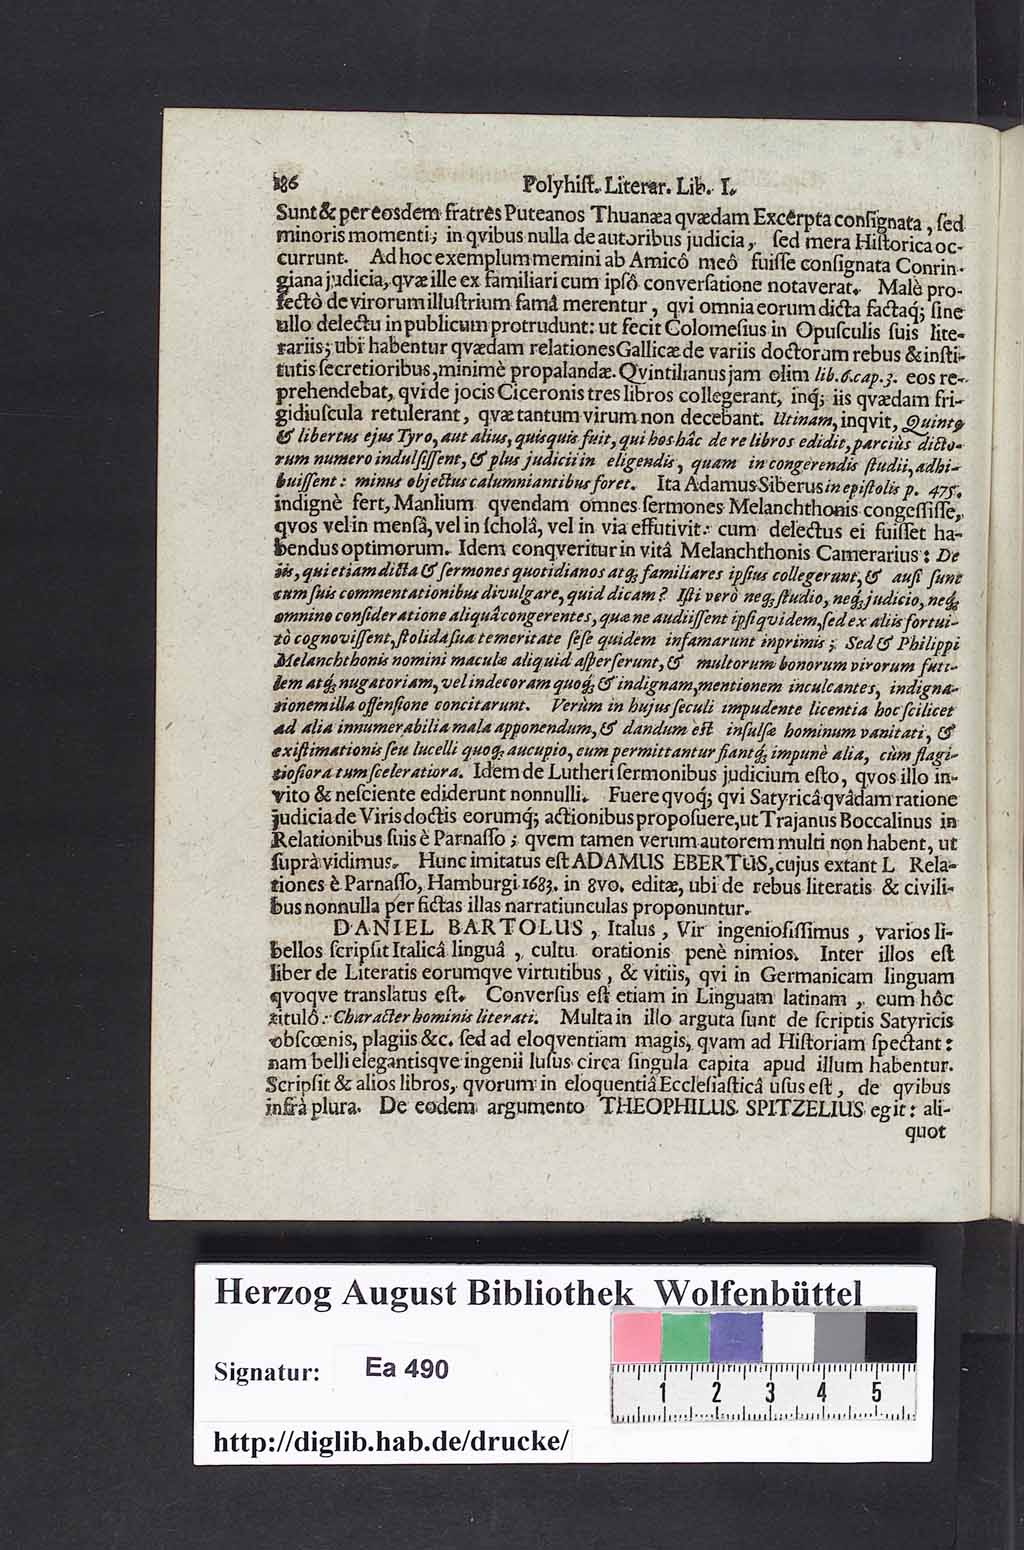 186 Polyhiſt. Literar. Lib. I.
Sunt & per eosdem fratres Puteanos Thuanæa qvædam Excerpta conſignata, ſed
minoris momenti; in qvibus nulla de autoribus judicia, ſed mera Hiſtorica oc-
currunt. Ad hoc exemplum memini ab Amicô meô fuiſſe conſignata Conrin-
giana judicia, qvæ ille ex familiari cum ipſô converſatione notaverat. Malè pro-
fectò de virorum illuſtrium famâ merentur, qvi omnia eorum dicta factaq́; ſine
ullo delectu in publicum protrudunt: ut fecit Colomeſius in Opuſculis ſuis lite-
rariis; ubi habentur qvædam relationes Gallicæ de variis doctorum rebus & inſti-
tutis ſecretioribus, minimè propalandæ. Qvintilianus jam olim lib. 6. cap. 3. eos re-
prehendebat, qvi de jocis Ciceronis tres libros collegerant, inq́; iis qvædam fri-
gidiuſcula retulerant, qvæ tantum virum non decebant. Utinam, inqvit, Quinto
& libertus ejus Tyro, aut alius, quisquis fuit, qui hos hâc de re libros edidit, parciùs dicto-
rum numero indulſiſſent, & plus judicii in eligendis, quam in congerendis ſtudii, adhi-
buiſſent: minus objectus calumniantibus foret. Ita Adamus Siberus in epiſtolis p. 475.
indignè fert, Manlium qvendam omnes ſermones Melanchthonis congeſſiſſe,
qvos vel in menſâ, vel in ſcholâ, vel in via effutivit: cum delectus ei fuiſſet ha-
bendus optimorum. Idem conqveritur in vitâ Melanchthonis Camerarius: De
iis, qui etiam dicta & ſermones quotidianos atq; familiares ipſius collegerunt, & auſi ſunt
cum ſuis commentationibus divulgare, quid dicam? Iſti verò neq; ſtudio, neq́; judicio, neq́;
omnino conſideratione aliquâ congerentes, quæ ne audiiſſent ipſi qvidem, ſed ex aliis fortui-
tò cognoviſſent, ſtolida ſua temeritate ſeſe quidem infamarunt inprimis; Sed & Philippi
Melanchthonis nomini maculæ aliquid aſperſerunt, & multorum bonorum virorum futi-
lem atq́; nugatoriam, vel indecoram quoq́; & indignam, mentionem inculcantes, indigna-
tionem illa offenſione concitarunt. Verùm in hujus ſeculi impudente licentia hoc ſcilicet
ad alia innumerabilia mala apponendum, & dandum eſt inſulſæ hominum vanitati, &
exiſtimationis ſeu lucelli quoq; aucupio, cum permittantur fiantq́; impunè alia, cùm flagi-
tioſiora tum ſceleratiora. Idem de Lutheri ſermonibus judicium eſto, qvos illo in-
vito & neſciente ediderunt nonnulli. Fuere qvoq́; qvi Satyricâ qvâdam ratione
judicia de Viris doctis eorumq́; actionibus propoſuere, ut Trajanus Boccalinus in
Relationibus ſuis è Parnaſſo; qvem tamen verum autorem multi non habent, ut
ſuprà vidimus. Hunc imitatus eſt ADAMUS EBERTUS, cujus extant L Rela-
tiones è Parnaſſo, Hamburgi 1683. in 8vo. editæ, ubi de rebus literatis & civili-
bus nonnulla per fictas illas narratiunculas proponuntur.
DANIEL BARTOLUS, Italus, Vir ingenioſiſſimus, varios li-
bellos ſcripſit Italicâ linguâ, cultu orationis penè nimios. Inter illos eſt
liber de Literatis eorumqve virtutibus, & vitiis, qvi in Germanicam linguam
qvoqve translatus eſt. Converſus eſt etiam in Linguam latinam, cum hôc
titulô: Character hominis literati. Multa in illo arguta ſunt de ſcriptis Satyricis
obſcœnis, plagiis &c. ſed ad eloqventiam magis, qvam ad Hiſtoriam ſpectant:
nam belli elegantisqve ingenii luſus circa ſingula capita apud illum habentur.
Scripſit & alios libros, qvorum in eloquentiâ Eccleſiaſticâ uſus eſt, de qvibus
infrà plura. De eodem argumento THEOPHILUS SPITZELIUS egit: ali-
quot
Herzog August Bibliothek Wolfenbüttel
Signatur: Ea 490
1 2 3 4 5
http://diglib.hab.de/drucke/